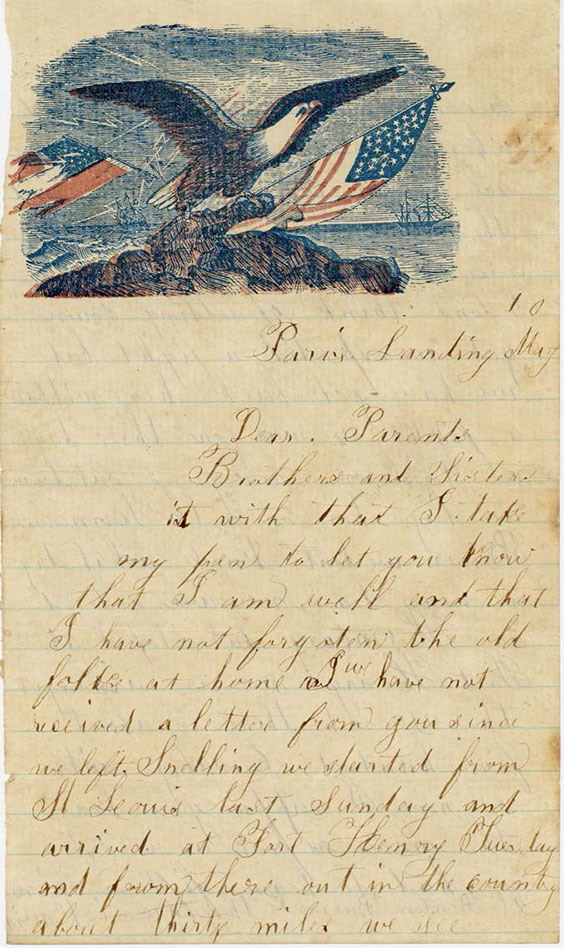 10
Paris Landing May
Dear. Parents
Brothers and Sisters
it with that I take
my pen to let you know
that I am well and that
I have not forgoten the old
folks at home we have not
received a letter from you since
we left. Snelling we started from
St Louis last Sunday and
arrived at Fort Henry Tuesday
and from there out in the country
about thirty miles we see